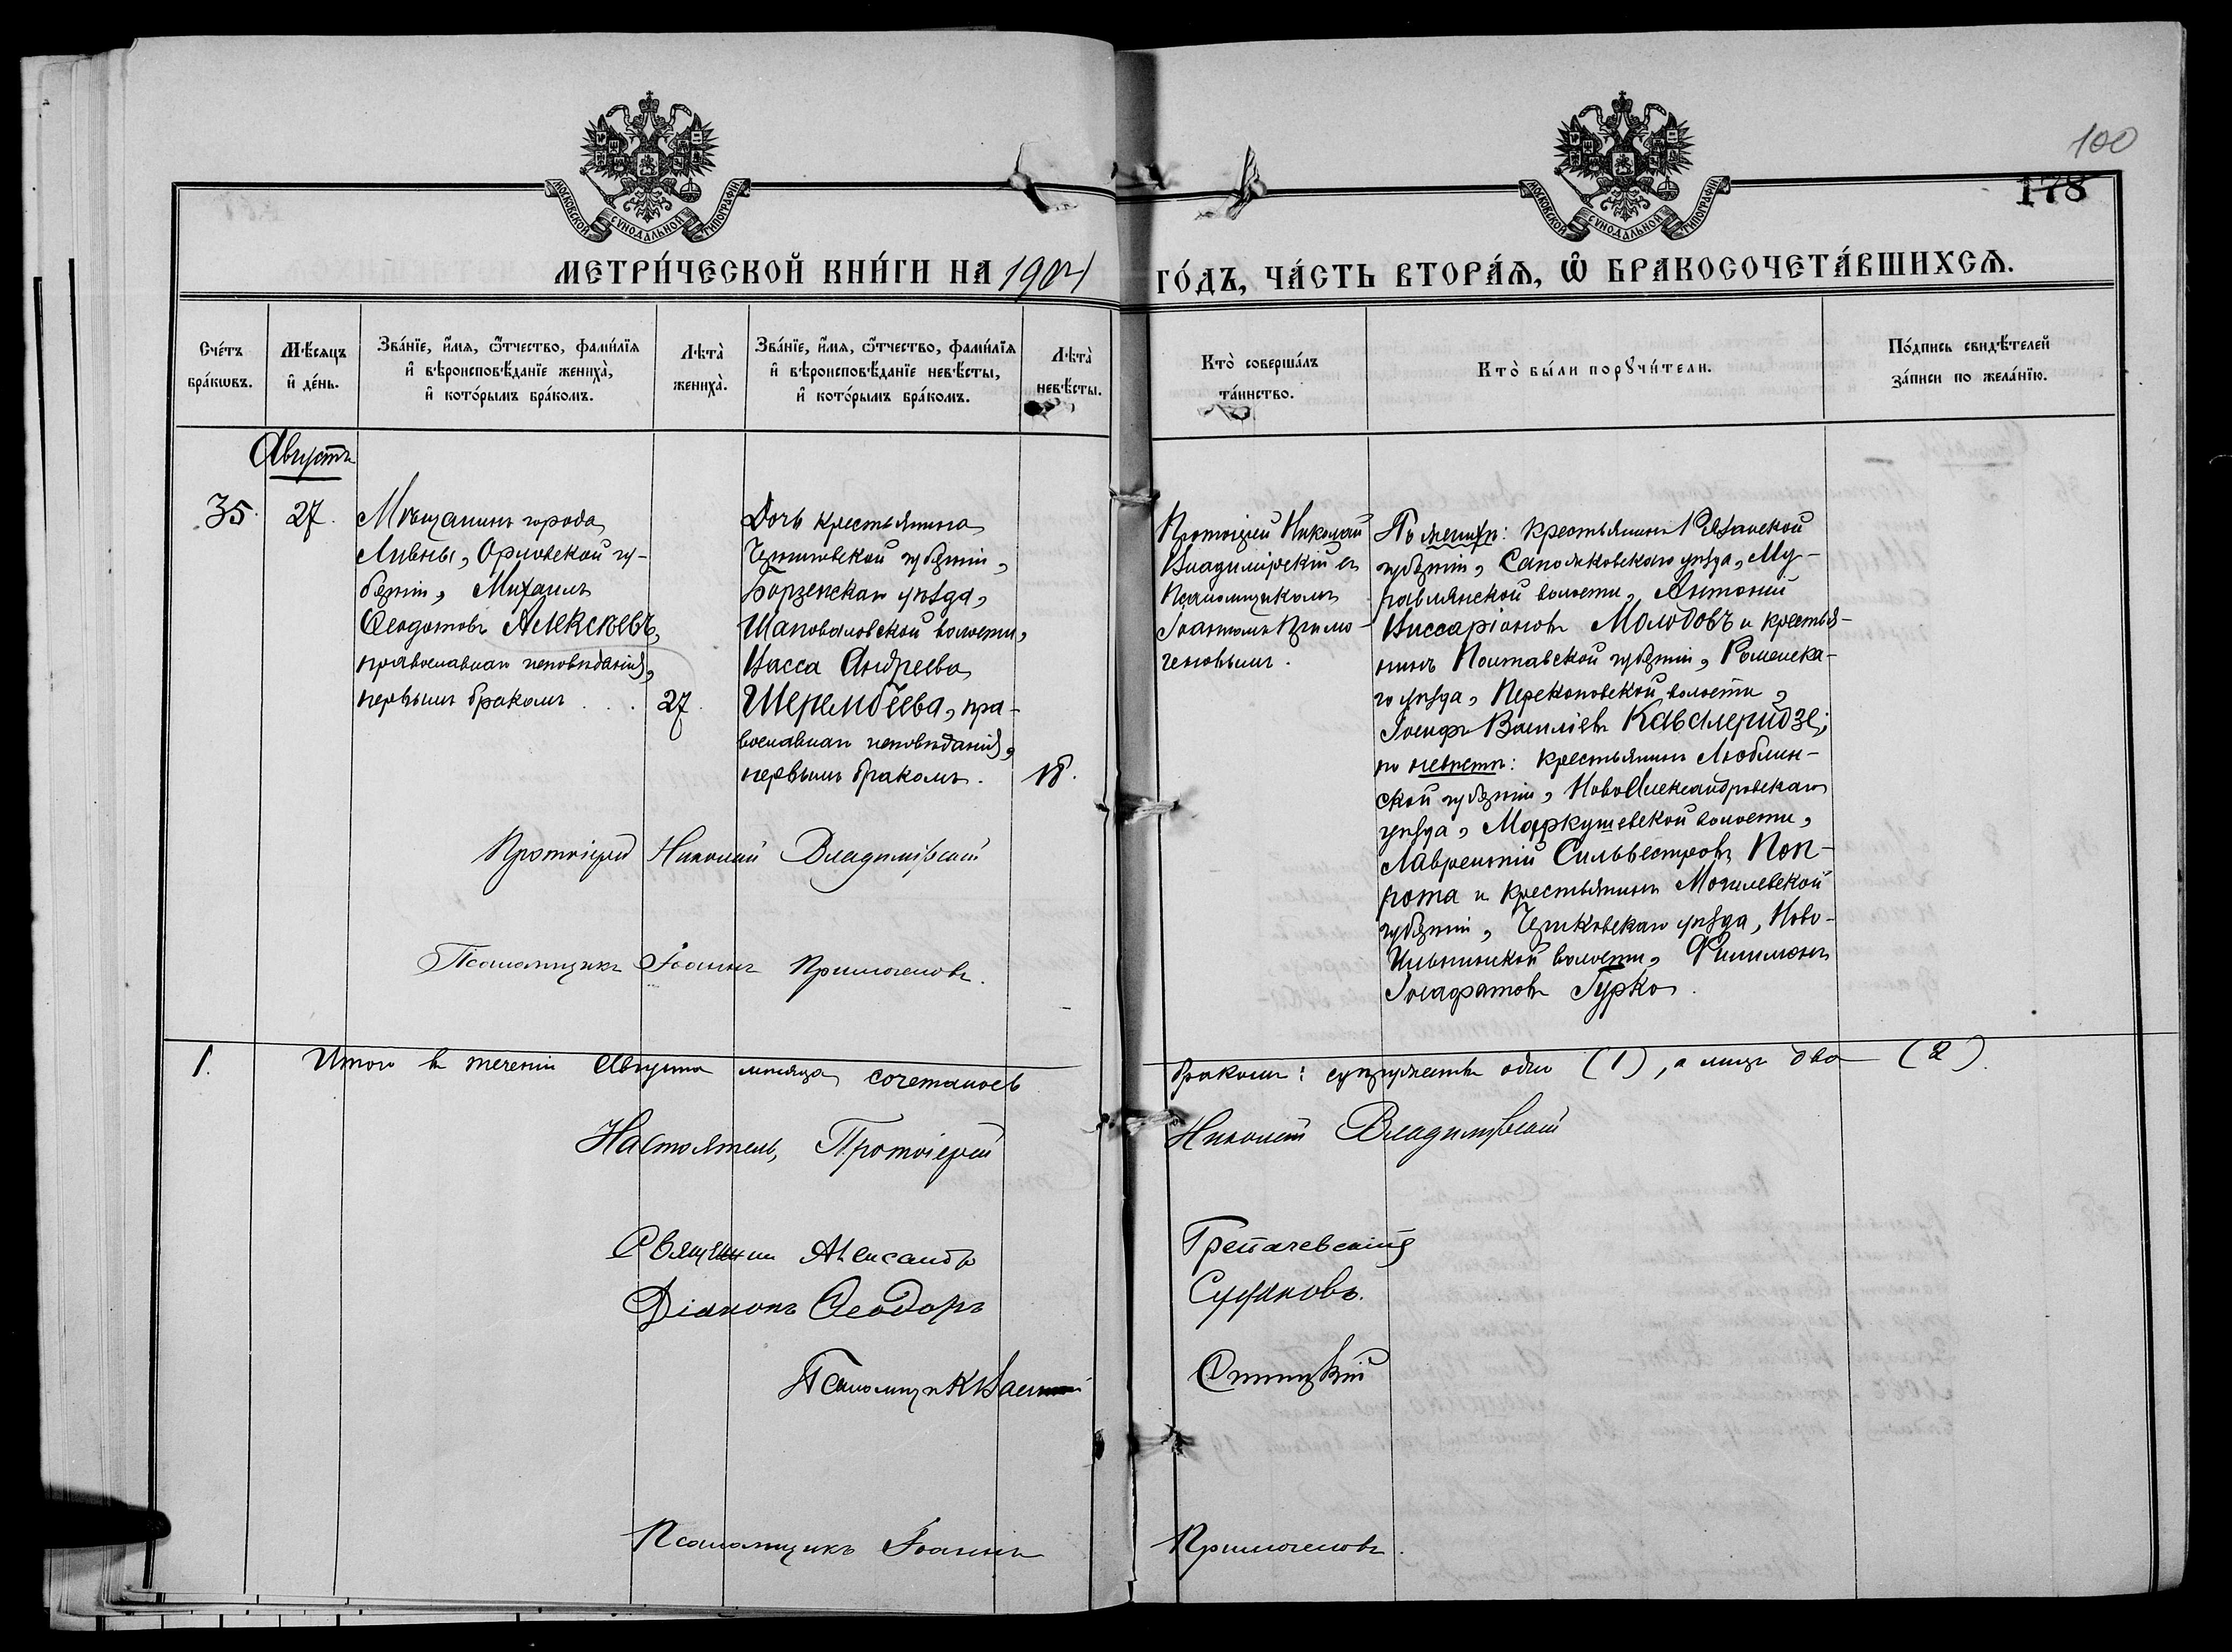 100
178
МОСКОВСКОЙ СѴНОДАЛЬНОЙ ТИПОГРАФІИ
МОСКОВСКОЙ СѴНОДАЛЬНОЙ ТИПОГРАФІИ
МЕТРИ́ЧЕСКОЙ КНИ́ГИ НА 1904 ГО́ДЪ, ЧА́СТЬ ВТОРА́Ѧ, Ѽ БРАКОСОЧЕТА́ВШИХСѦ.
Сче́тъ
бра́кѡвъ.
Мѣ́сяцъ
и҆ де́нь.
Зва́нїе, и҆́мя, ѻ҆́тчество, фами́лїя
и҆ вѣроисповѣ́данїе жениха̀,
и҆ кото́рымъ бра́комъ.
Лѣта̀
жениха̀.
Зва́нїе, и҆́мя, ѻ҆́тчество, фами́лїя
и҆ вѣроисповѣ́данїе невѣ́сты,
и҆ кото́рымъ бра́комъ.
Лѣта̀
невѣ́сты.
Кто̀ соверша́лъ
та́инство.
Кто̀ бы́ли порꙋчи́тели.
По́дпись свидѣ́телей
за́писи по жела́нїю.
Августъ
35.
27.
Мѣщанинъ города
Ливны, Орловской гу-
берніи, Михаилъ
Ѳеодотовъ Алексѣевъ,
православнаго исповѣданія,
первымъ бракомъ . . .
27.
Дочь крестьянина
Черниговской губерніи,
Борзенскаго уѣзда,
Шаповаловской волости,
Васса Андреева
Шеремѣева, пра-
вославнаго исповѣданія,
первымъ бракомъ.
18.
Протоіерей Николай
Владимірскій съ
Псаломщикомъ
Іоанномъ Примо-
геновымъ.
По женихѣ: крестьянинъ Рязанской
губерніи, Сапожковскаго уѣзда, Му-
равлянской волости, Антоній
Виссаріоновъ Молодовъ и крестья-
нинъ Полтавской губерніи, Роменска-
го уѣзда, Перекоповской волости,
Іосифъ Василіевъ Кавалеридзе;
по невѣстѣ: крестьянинъ Люблин-
ской губерніи, НовоАлександровскаго
уѣзда, Маркушевской волости,
Лаврентій Сильвестровъ Поп-
рота и крестьянинъ Могилевской
губерніи, Чериковскаго уѣзда, Ново-
Ильинской волости, Филимонъ
Іосафатовъ Гурко.
Протоіерей Николай Владимірскій
Псаломщикъ Іоаннъ Примогеновъ.
1. Итого въ теченіи Августа мѣсяца сочеталось бракомъ: супружествъ одно (1), а лицъ два (2).
Настоятель, Протоіерей Николай Владимірскій
Священник Александръ
Діаконъ Ѳеодоръ
Псаломщикъ
Псаломщикъ Іоаннъ Примогеновъ.